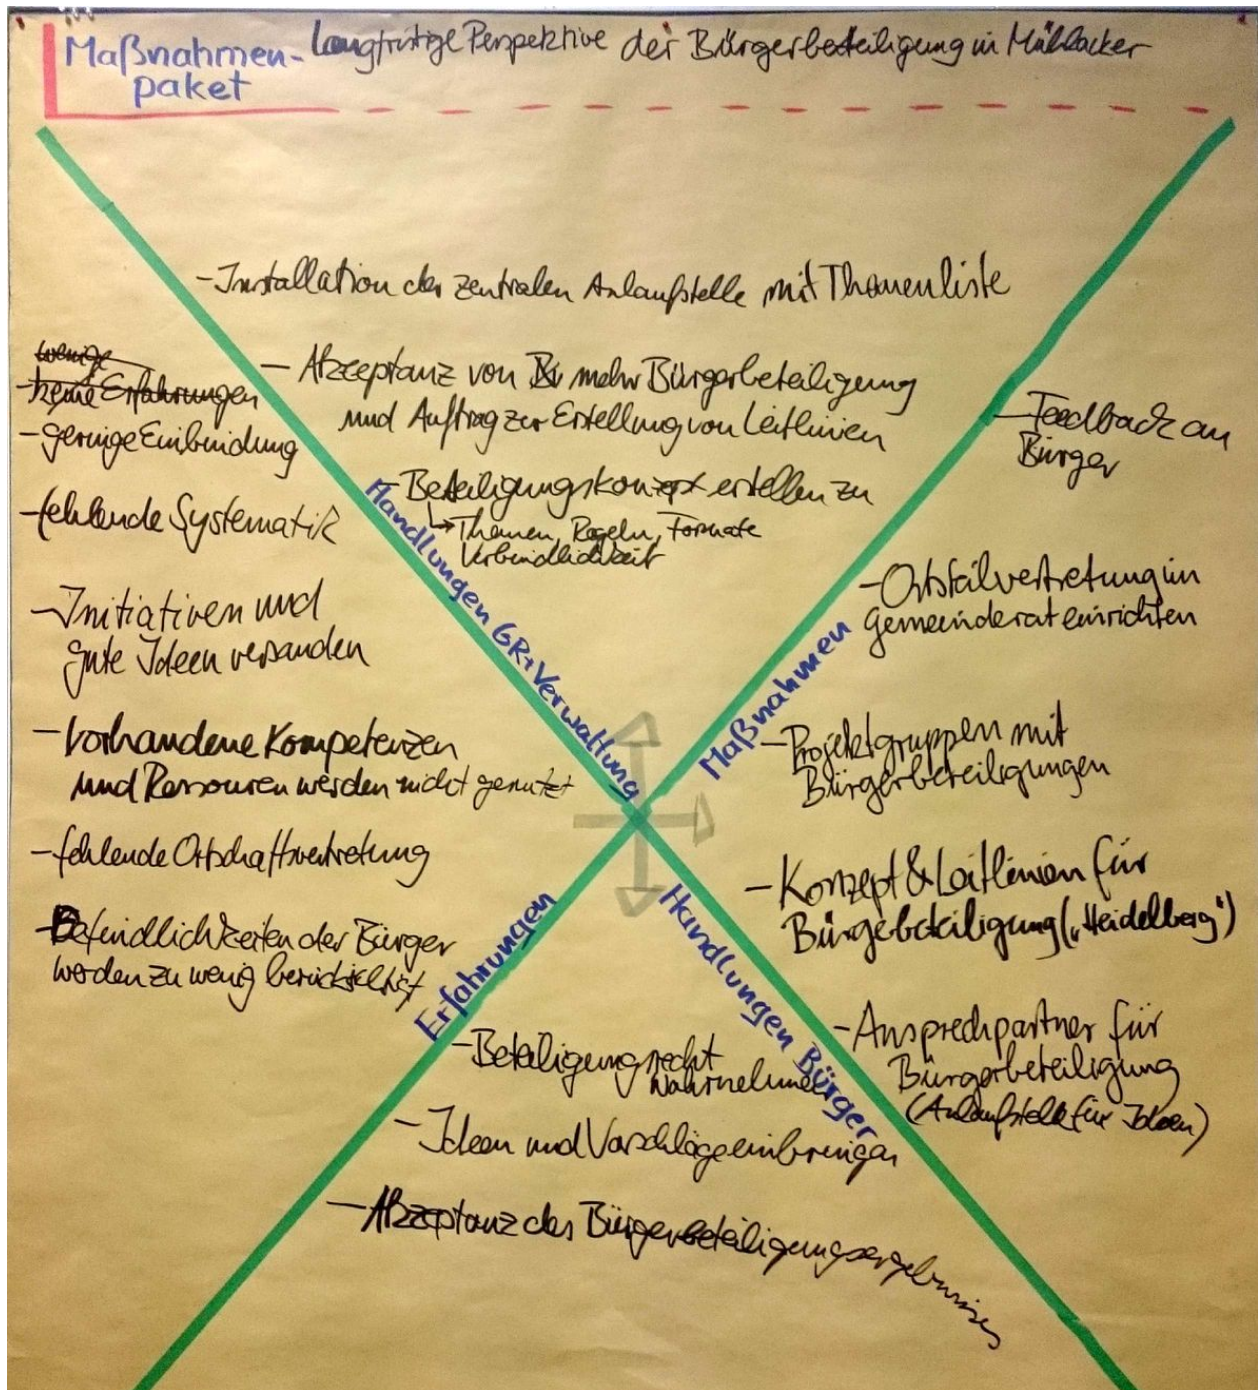 Maßnahmen-
paket
Langfristige Perspektive der Bürgerbeteiligung in Mühlacker
- Installation der zentralen Anlaufstelle mit Themenliste
- Akzeptanz von mehr Bürgerbeteiligung
und Auftrag zur Erstellung von Leitlinien
- Beteiligungskonzept erstellen zu
↳ Themen, Regeln, Formate
Verbindlichkeit
Handlungen GR+Verwaltung
wenige
- keine Erfahrungen
- geringe Einbindung
- fehlende Systematik
- Initiativen und
gute Ideen versanden
- vorhandene Kompetenzen
und Ressourcen werden nicht genutzt
- fehlende Ortschaftsvertretung
- Befindlichkeiten der Bürger
werden zu wenig berücksichtigt
Erfahrungen
- Feedback an
Bürger
- Ortsteilvertretung im
Gemeinderat einrichten
- Projektgruppen mit
Bürgerbeteiligungen
- Konzept & Leitlinien für
Bürgerbeteiligung („Heidelberg“)
- Ansprechpartner für
Bürgerbeteiligung
(Anlaufstelle für Ideen)
Maßnahmen
Handlungen Bürger
- Beteiligungsrecht
wahrnehmen
- Ideen und Vorschläge einbringen
- Akzeptanz des Bürgerbeteiligungsergebnisses